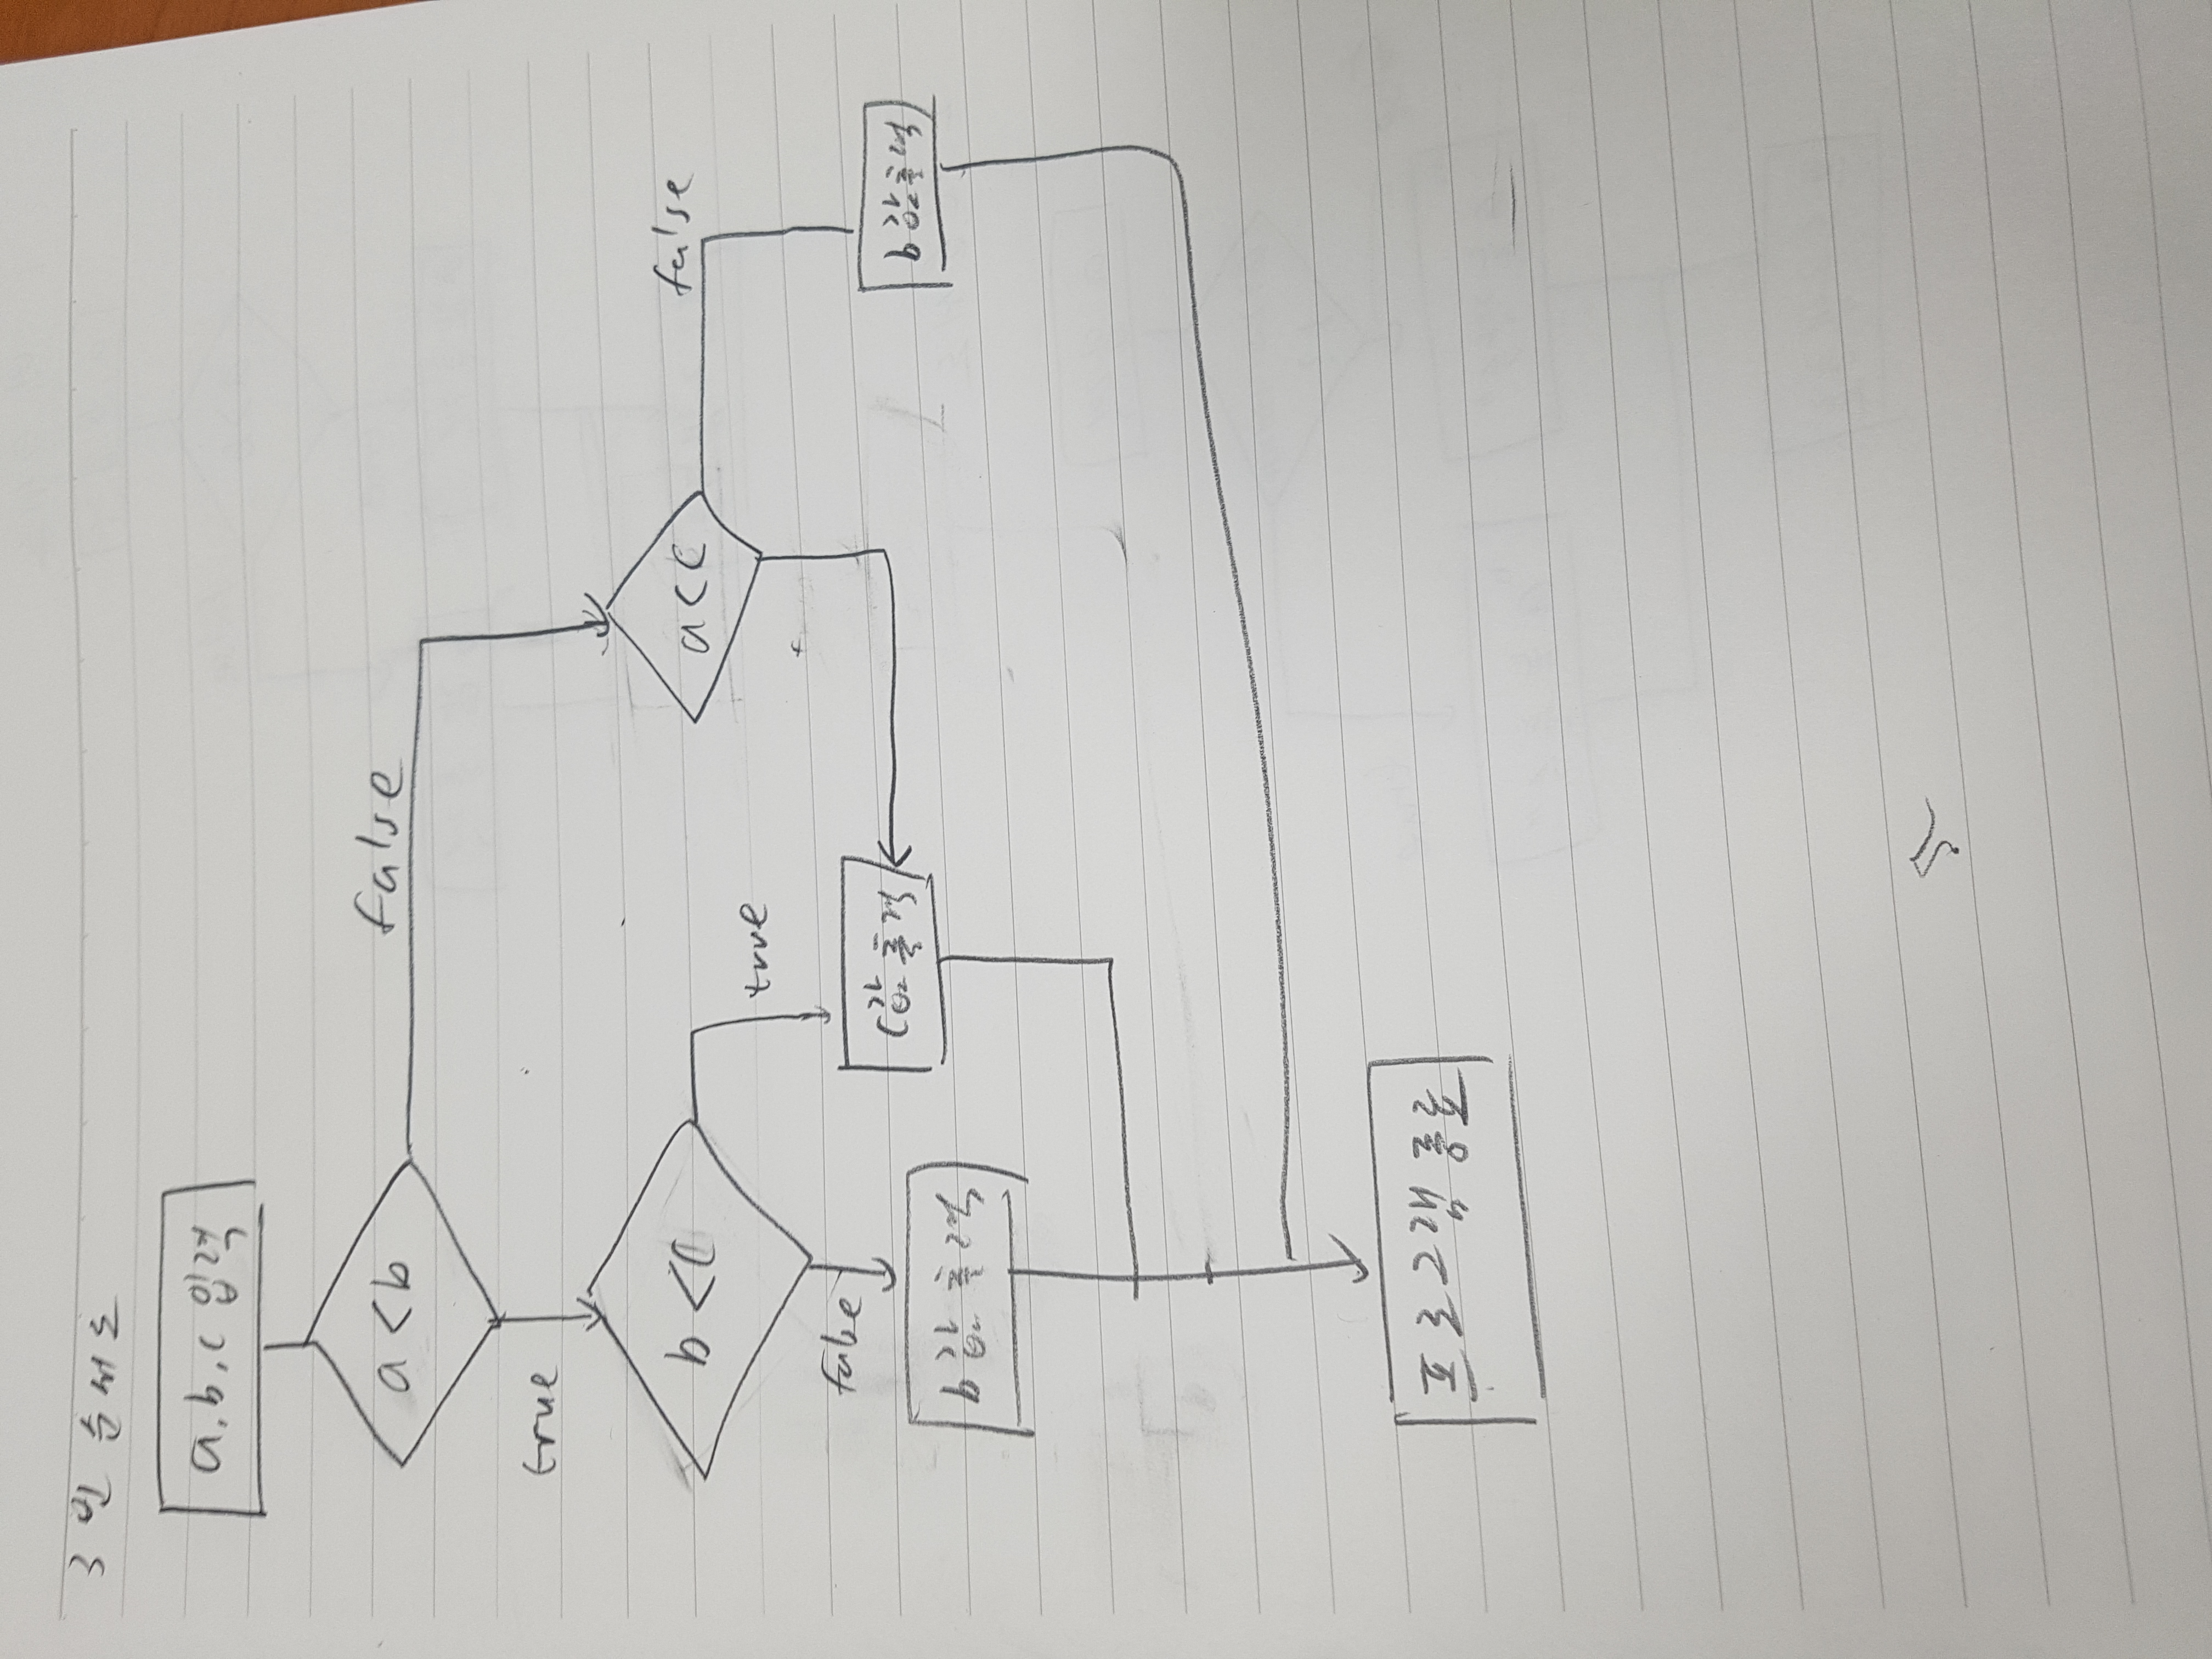 3번 순서도
a, b, c 입력
a < b
false
true
b < c
a < c
false
true
false
c값 출력
b값 출력
b값 출력
프로그램 종료